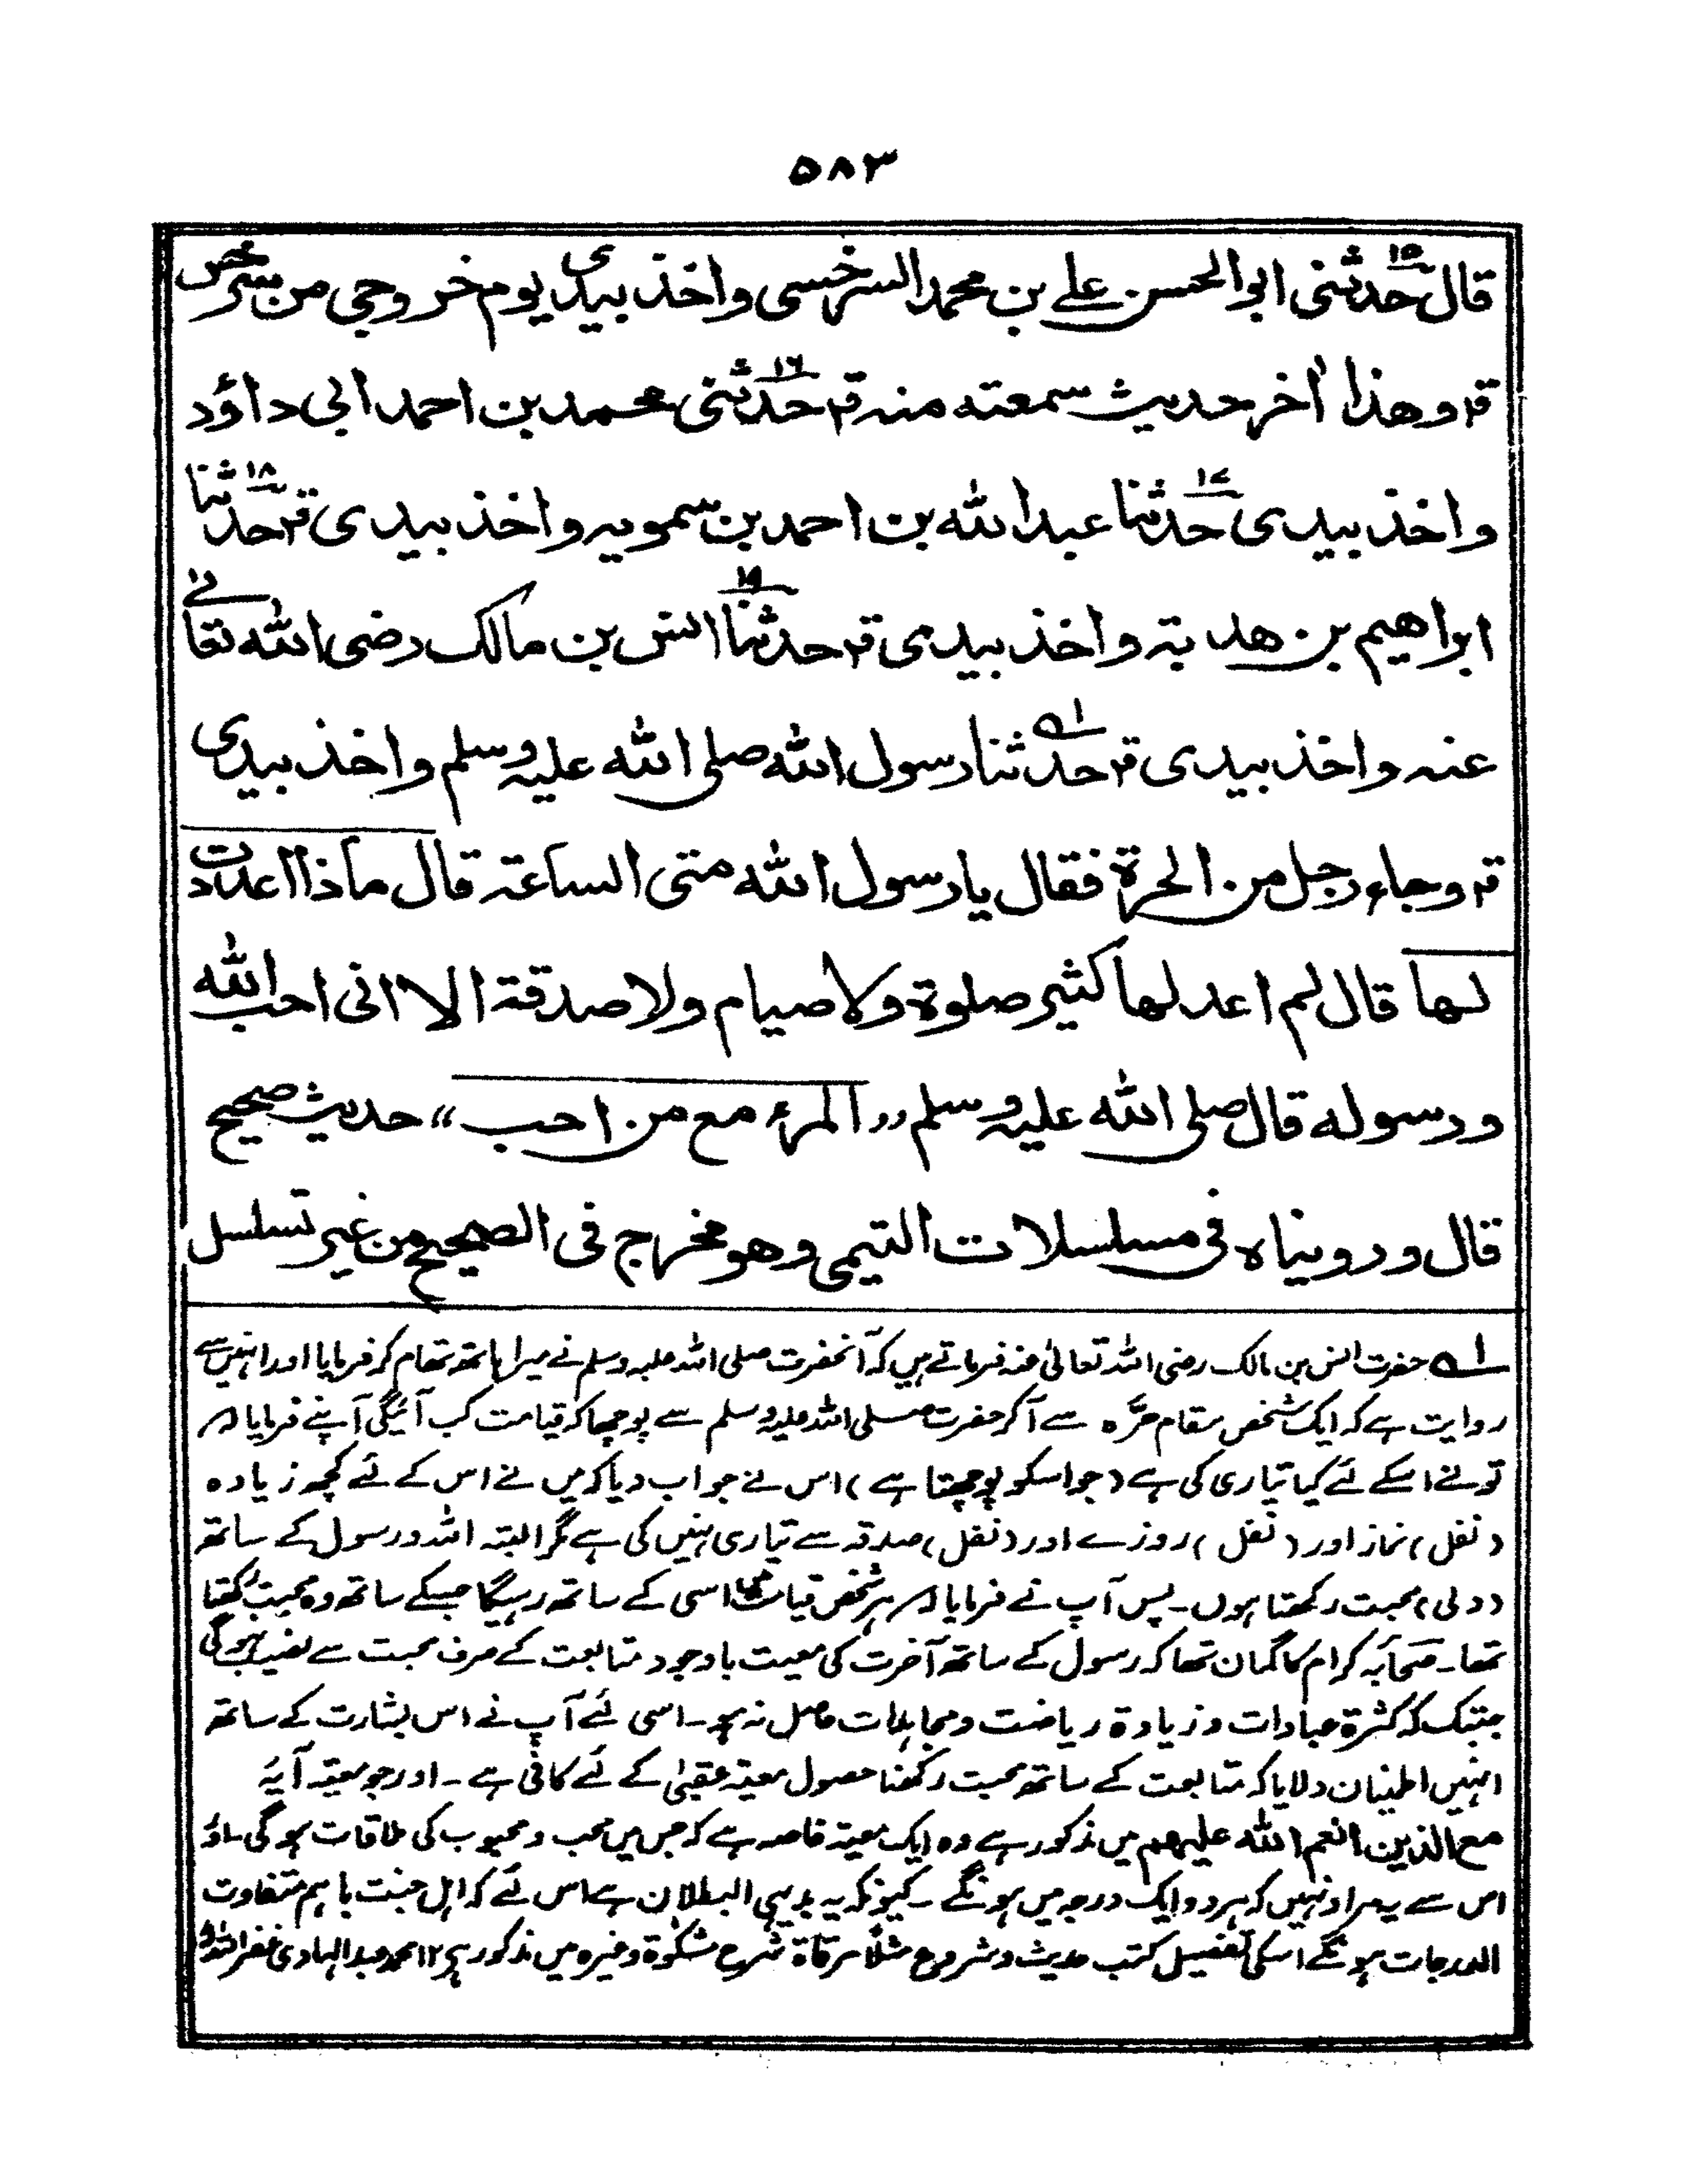 ۵۸۳
قال حدثنی ابوالحسن علے بن محمد السرخسی واخذ بیدی یوم خروجی من سرخس
قہ وھذا اٰخر حدیث سمعته منہ قہ حدثنی محمد بن احمد ابی داؤد
واخذ بیدی حدثنا عبداللّٰه بن احمد بن سمویہ واخذ بیدی قہ حدثنا
ابراھیم بن ھدبتہ واخذ بیدی قہ حدثنا انس بن مالک رضی اللّٰه تعالے
عنہ واخذ بیدی قہ حدثنا رسول اللّٰه صلی اللّٰه علیہ وسلم واخذ بیدی
قہ وجاء رجل من الحرة فقال یا رسول اللّٰه متی الساعۃ قال ماذا اعددت
لھا قال لم اعد لھا کثیر صلوة ولا صیام ولا صدقۃ الا انی احب اللّٰه
ورسوله قال صلی اللّٰه علیہ وسلم ،، المرء مع من احب ،، حدیث صحیح
قال ورویناہ فی مسلسلات التیمی وھو مخرج فی الصحیح من غیر تسلسل
لہ حضرت انس بن مالک رضی اللہ تعالیٰ عنہ فرماتے ہیں کہ آنحضرت صلی اللہ علیہ وسلم نے میرا ہاتھ تھام کر فرمایا اور انہیں سے
روایت ہے کہ ایک شخص مقام حَرَّہ سے آکر حضرت صلی اللہ علیہ وسلم سے پوچھا کہ قیامت کب آئیگی آپنے فرمایا کہ
تو نے اسکے لئے کیا تیاری کی ہے (جو اسکو پوچھتا ہے) اس نے جواب دیا کہ میں نے اس کے لئے کچھ زیادہ
(نفل) نماز اور (نفل) روزے اور (نفل) صدقہ سے تیاری نہیں کی ہے مگر البتہ اللہ و رسول کے ساتھ
(دلی) محبت رکھتا ہوں۔ پس آپ نے فرمایا کہ ہر شخص قیامت میں اسی کے ساتھ رہیگا جسکے ساتھ وہ محبت رکھتا
تھا۔ صحابۂ کرام کا گمان تھا کہ رسول کے ساتھ آخرت کی معیت باوجود متابعت کے صرف محبت سے نصیب نہوگی
جبتک کہ کثرۃ عبادات و زیادۃ ریاضت و مجاہدات حاصل نہ ہو۔ اسی لئے آپ نے اس بشارت کے ساتھ
انہیں اطمینان دلایا کہ متابعت کے ساتھ محبت رکھنا حصول معیۃ عقبیٰ کے لئے کافی ہے۔ اور جو معیۃ آیۂ
مع الذین انعم اللّٰه علیھم میں مذکور ہے وہ ایک معیۃ خاصہ ہے کہ جس میں محب و محبوب کی ملاقات ہوگی۔ اور
اس سے یہ مراد نہیں کہ ہر دو ایک درجہ میں ہونگے۔ کیونکہ یہ بدیہی البطلان ہے اس لئے کہ اہل جنت باہم متفاوت
الدرجات ہونگے اسکی تفصیل کتب حدیث و شروح مثلًا مرقاۃ شرح مشکوٰۃ وغیرہ میں مذکور ہے ۱۲ محمد عبدالہادی غفر اللہ لہ